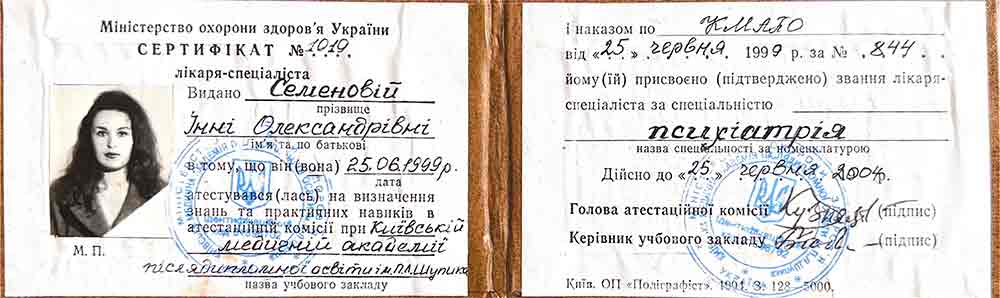 Міністерство охорони здоров'я України
СЕРТИФІКАТ № 1019
лікаря-спеціаліста
Видано Семеновій
прізвище
Інні Олександрівні
ім'я та по батькові
в тому, що він (вона) 25.06.1999р.
дата
атестувався (лась) на визначення
знань та практичних навиків в
атестаційній комісії при Київській
медичній академії
післядипломної освіти ім. П.Л.Шупика
назва учбового закладу
М. П.
і наказом по КМАПО
від «25» червня 1999 р. за № 844.
йому (їй) присвоєно (підтверджено) звання лікаря-
спеціаліста за спеціальністю
психіатрія
назва спеціальності за номенклатурою
Дійсно до «25» червня 2004р.
Голова атестаційної комісії (підпис)
Керівник учбового закладу (підпис)
Київ. ОП «Поліграфіст». 1994. З. 128—5000.